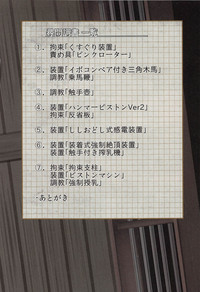 拷問器具一覧
1．拘束「くすぐり装置」
責め具「ピンクローター」
2．装置「イボコンベア付き三角木馬」
調教「乗馬鞭」
3．調教「触手壺」
4．装置「ハンマーピストンVer2」
拘束「反省板」
5．装置「ししおどし式感電装置」
6．装置「装着式強制絶頂装置」
装置「触手付き搾乳機」
7．拘束「拘束支柱」
装置「ピストンマシン」
調教「強制授乳」
あとがき